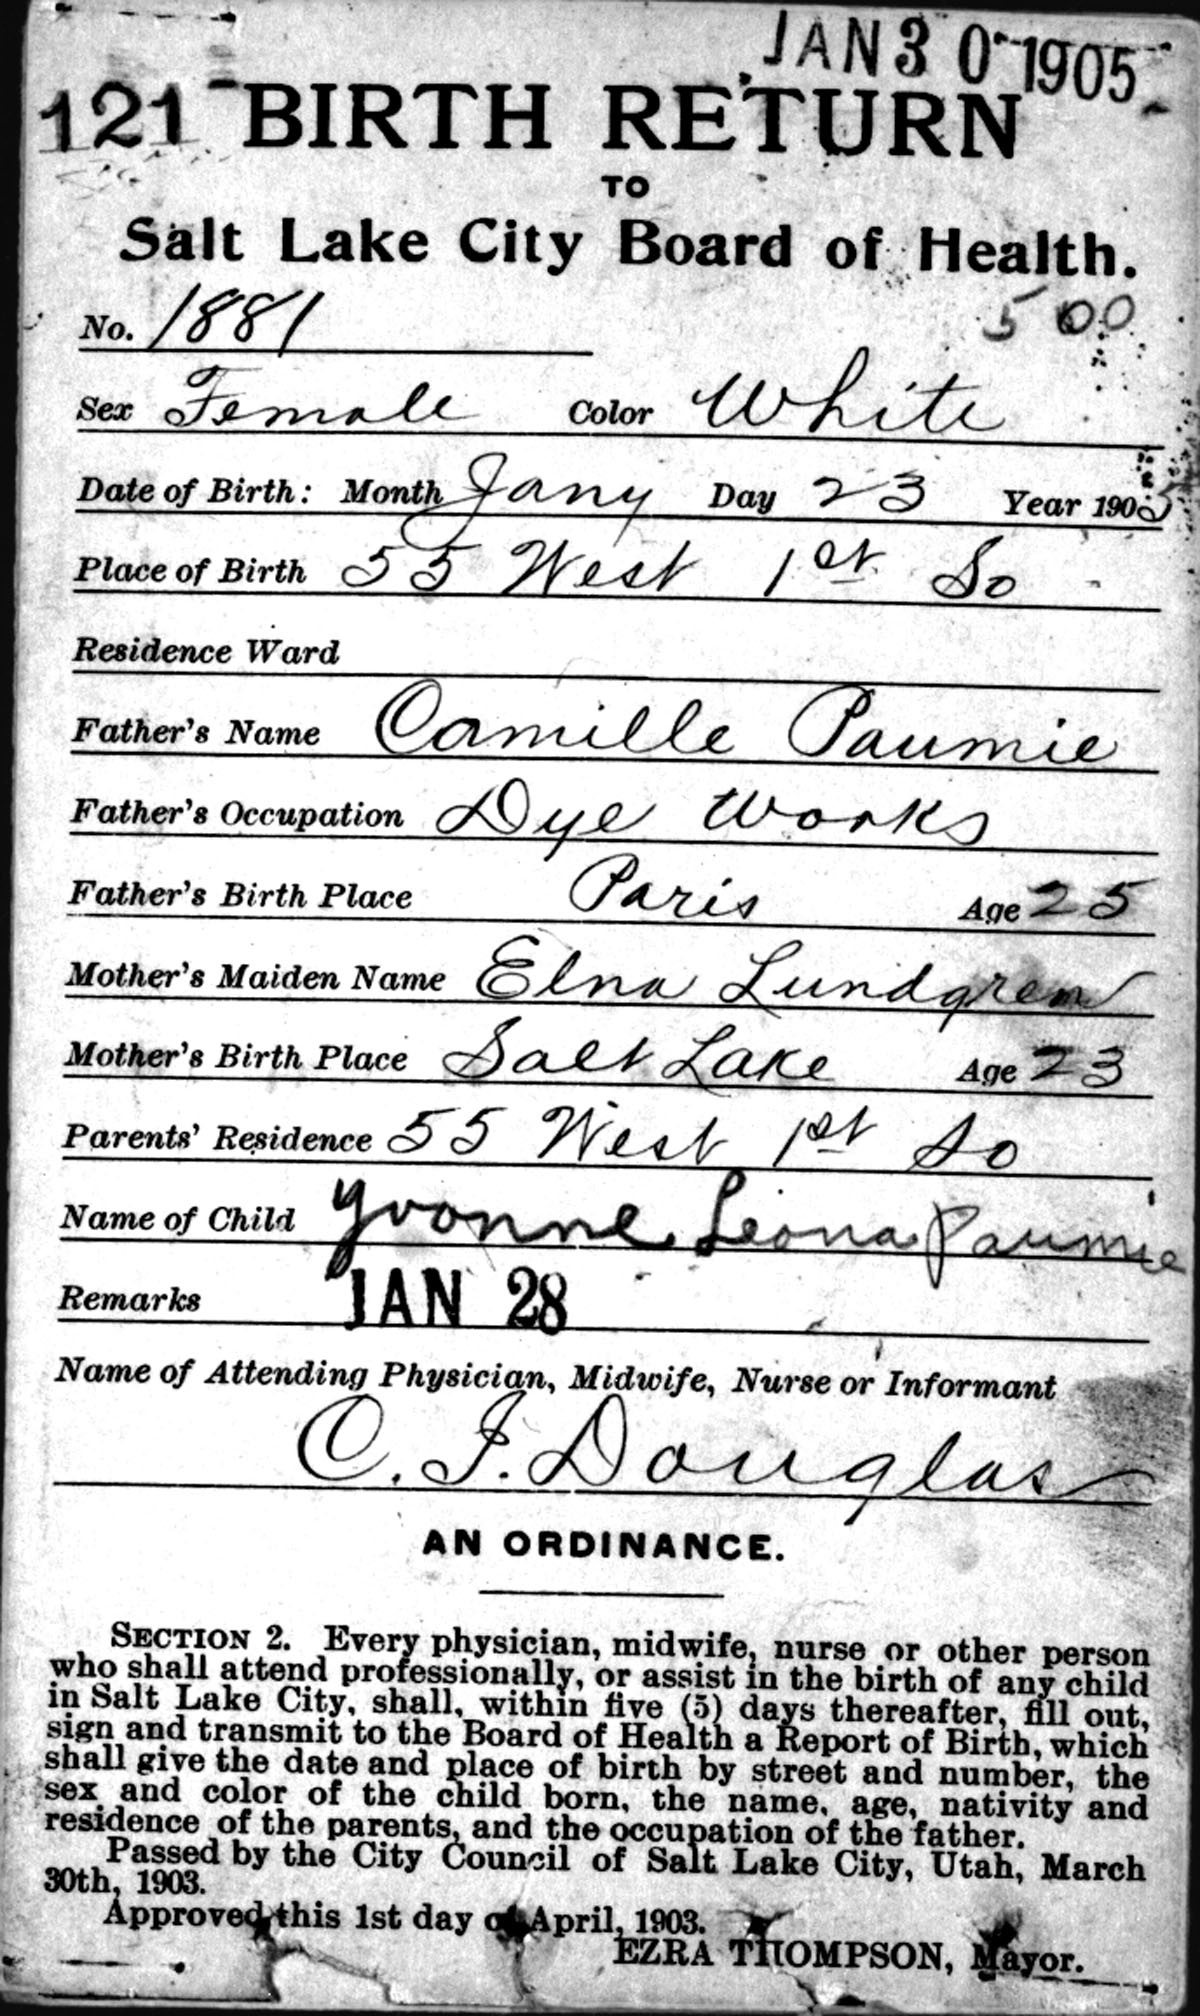 JAN 30 1905
121 BIRTH RETURN
TO
Salt Lake City Board of Health.
No. 1881 500
Sex Female Color White
Date of Birth: Month Jany Day 23 Year 1905
Place of Birth 55 West 1st So
Residence Ward
Father's Name Camille Paumie
Father's Occupation Dye Works
Father's Birth Place Paris Age 25
Mother's Maiden Name Elna Lundgren
Mother's Birth Place Salt Lake Age 23
Parents' Residence 55 West 1st So
Name of Child Yvonne Leona Paumie
Remarks JAN 28
Name of Attending Physician, Midwife, Nurse or Informant
C. J. Douglas
AN ORDINANCE.
SECTION 2. Every physician, midwife, nurse or other person
who shall attend professionally, or assist in the birth of any child
in Salt Lake City, shall, within five (5) days thereafter, fill out,
sign and transmit to the Board of Health a Report of Birth, which
shall give the date and place of birth by street and number, the
sex and color of the child born, the name, age, nativity and
residence of the parents, and the occupation of the father.
Passed by the City Council of Salt Lake City, Utah, March
30th, 1903.
Approved this 1st day of April, 1903.
EZRA THOMPSON, Mayor.